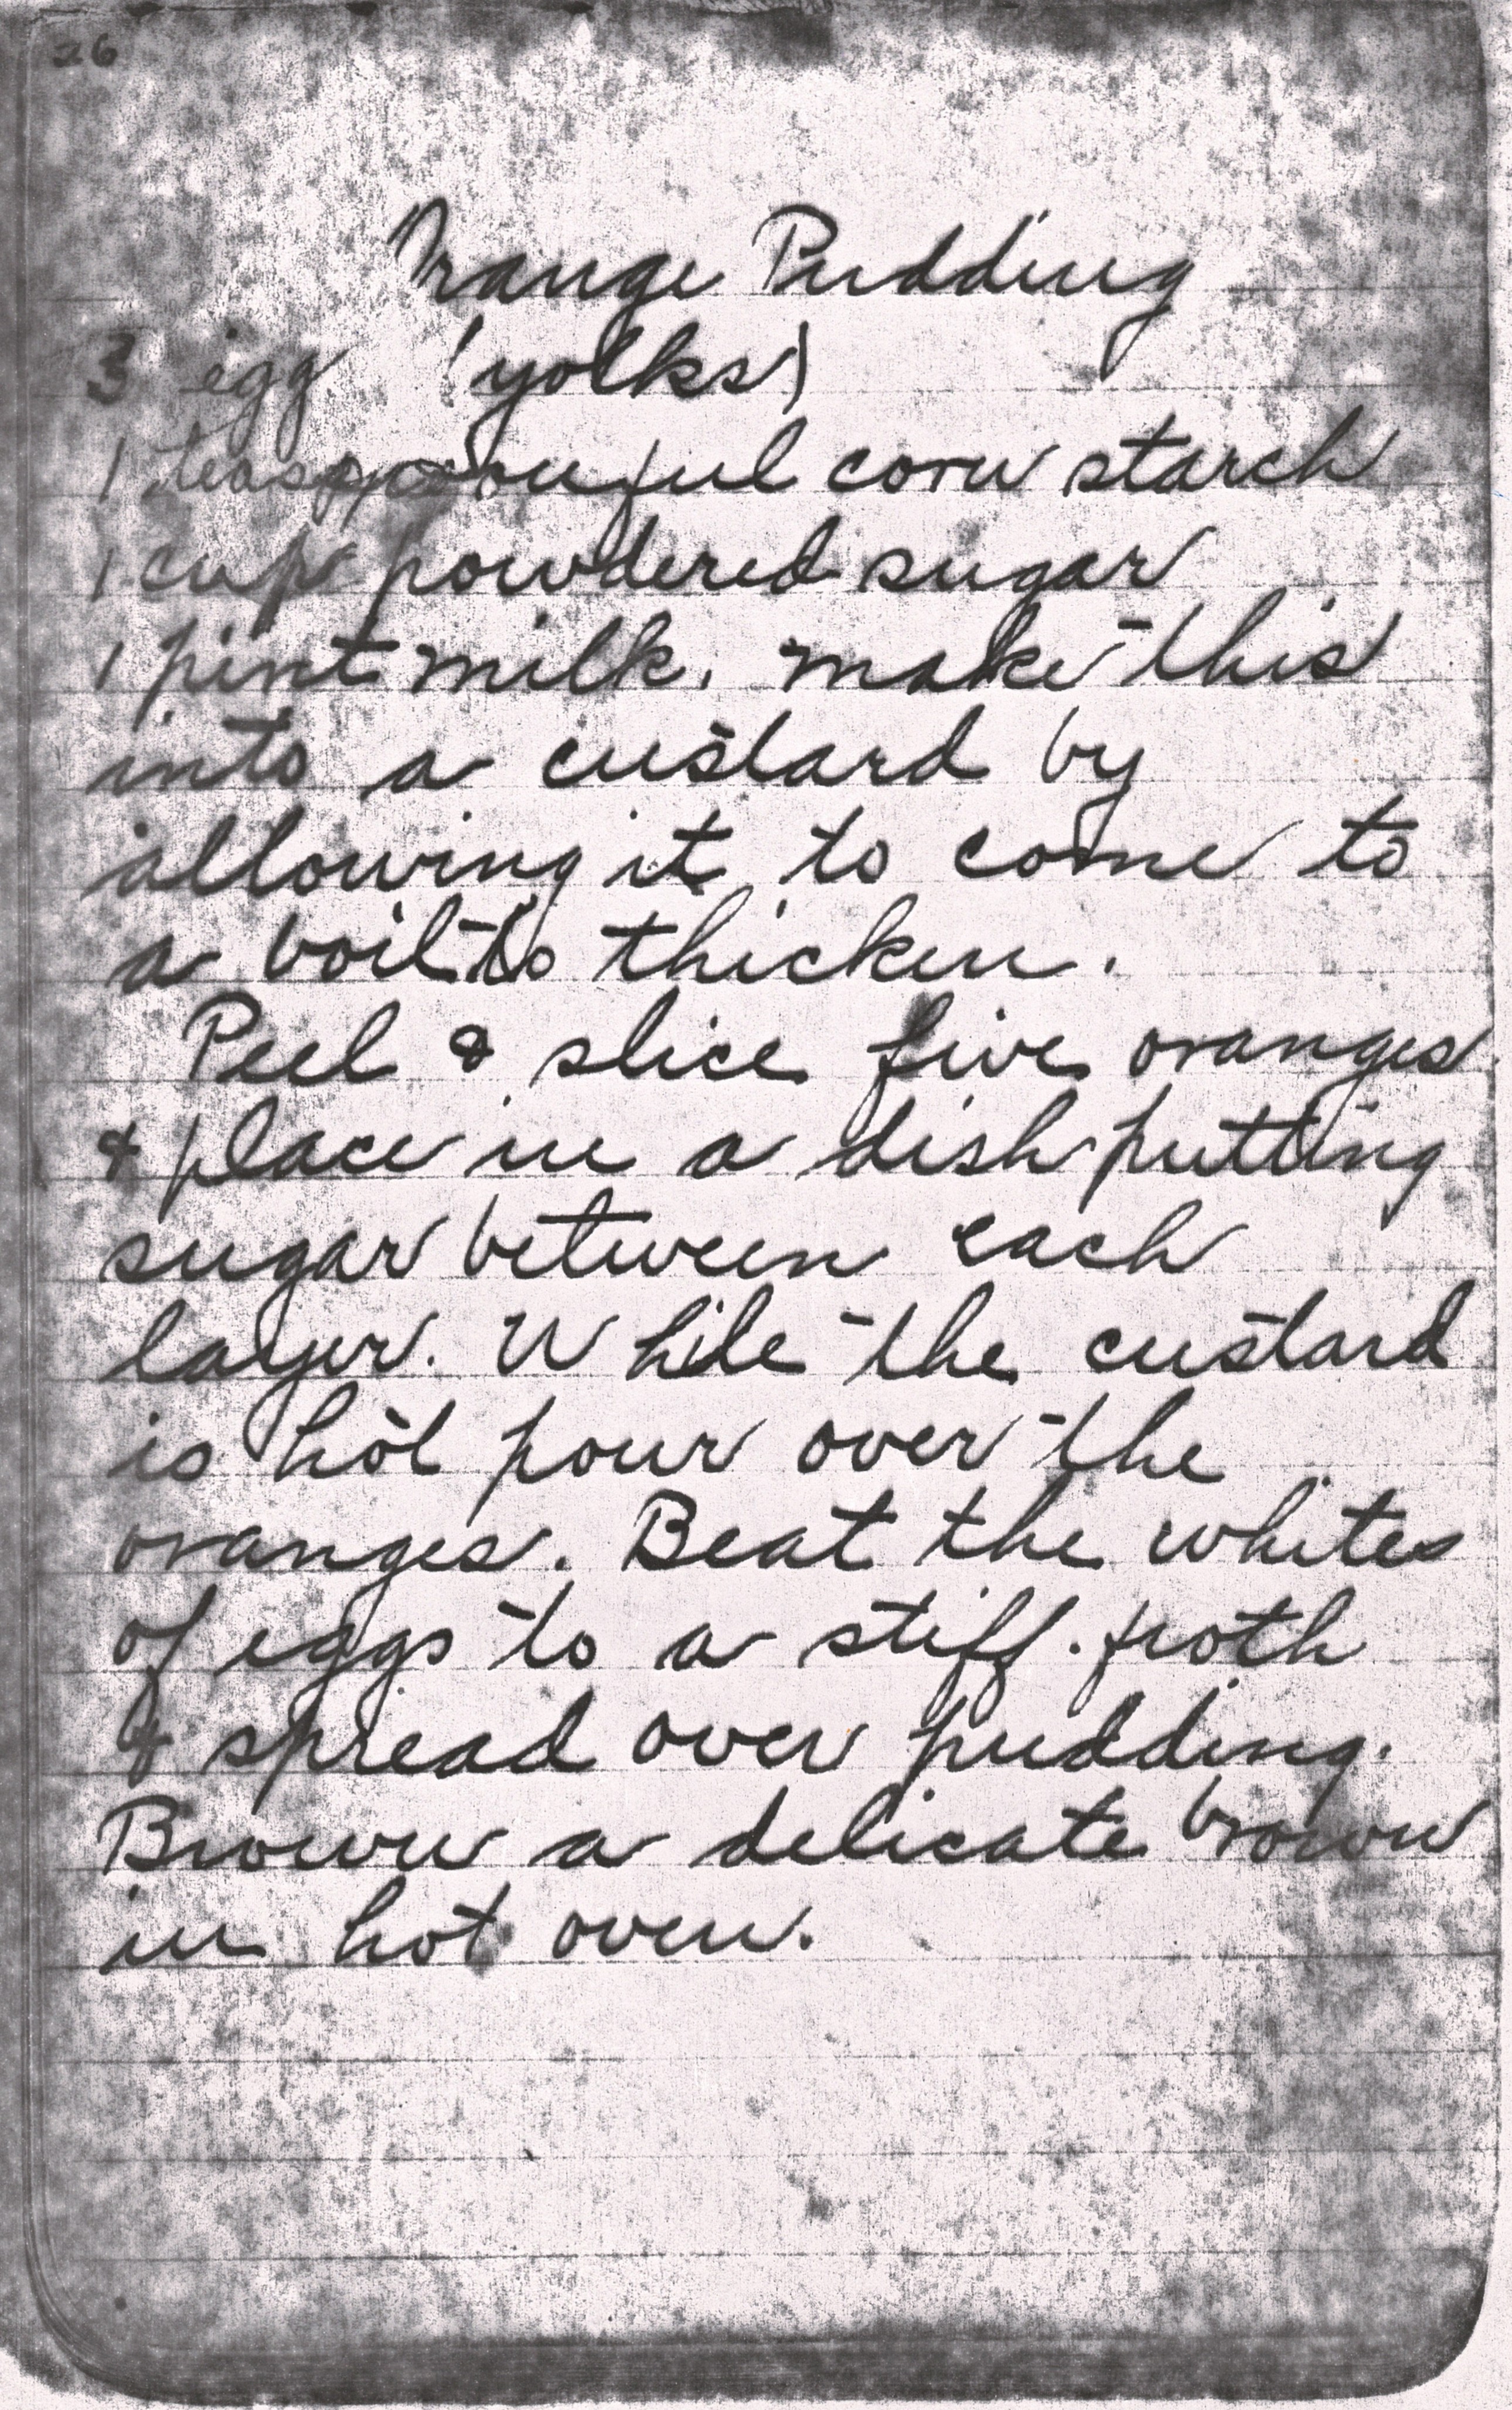 26
Orange Pudding
3 egg (yolks)
1 teaspoonful corn starch
1 cup powdered sugar
1 pint milk. make this
into a custard by
allowing it to come to
a boil to thicken.
Peel & slice five oranges
& place in a dish putting
sugar between each
layer. While the custard
is hot pour over the
oranges. Beat the whites
of eggs to a stiff froth
& spread over pudding.
Brown a delicate brown
in hot oven.